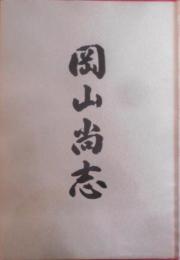 岡山尚志